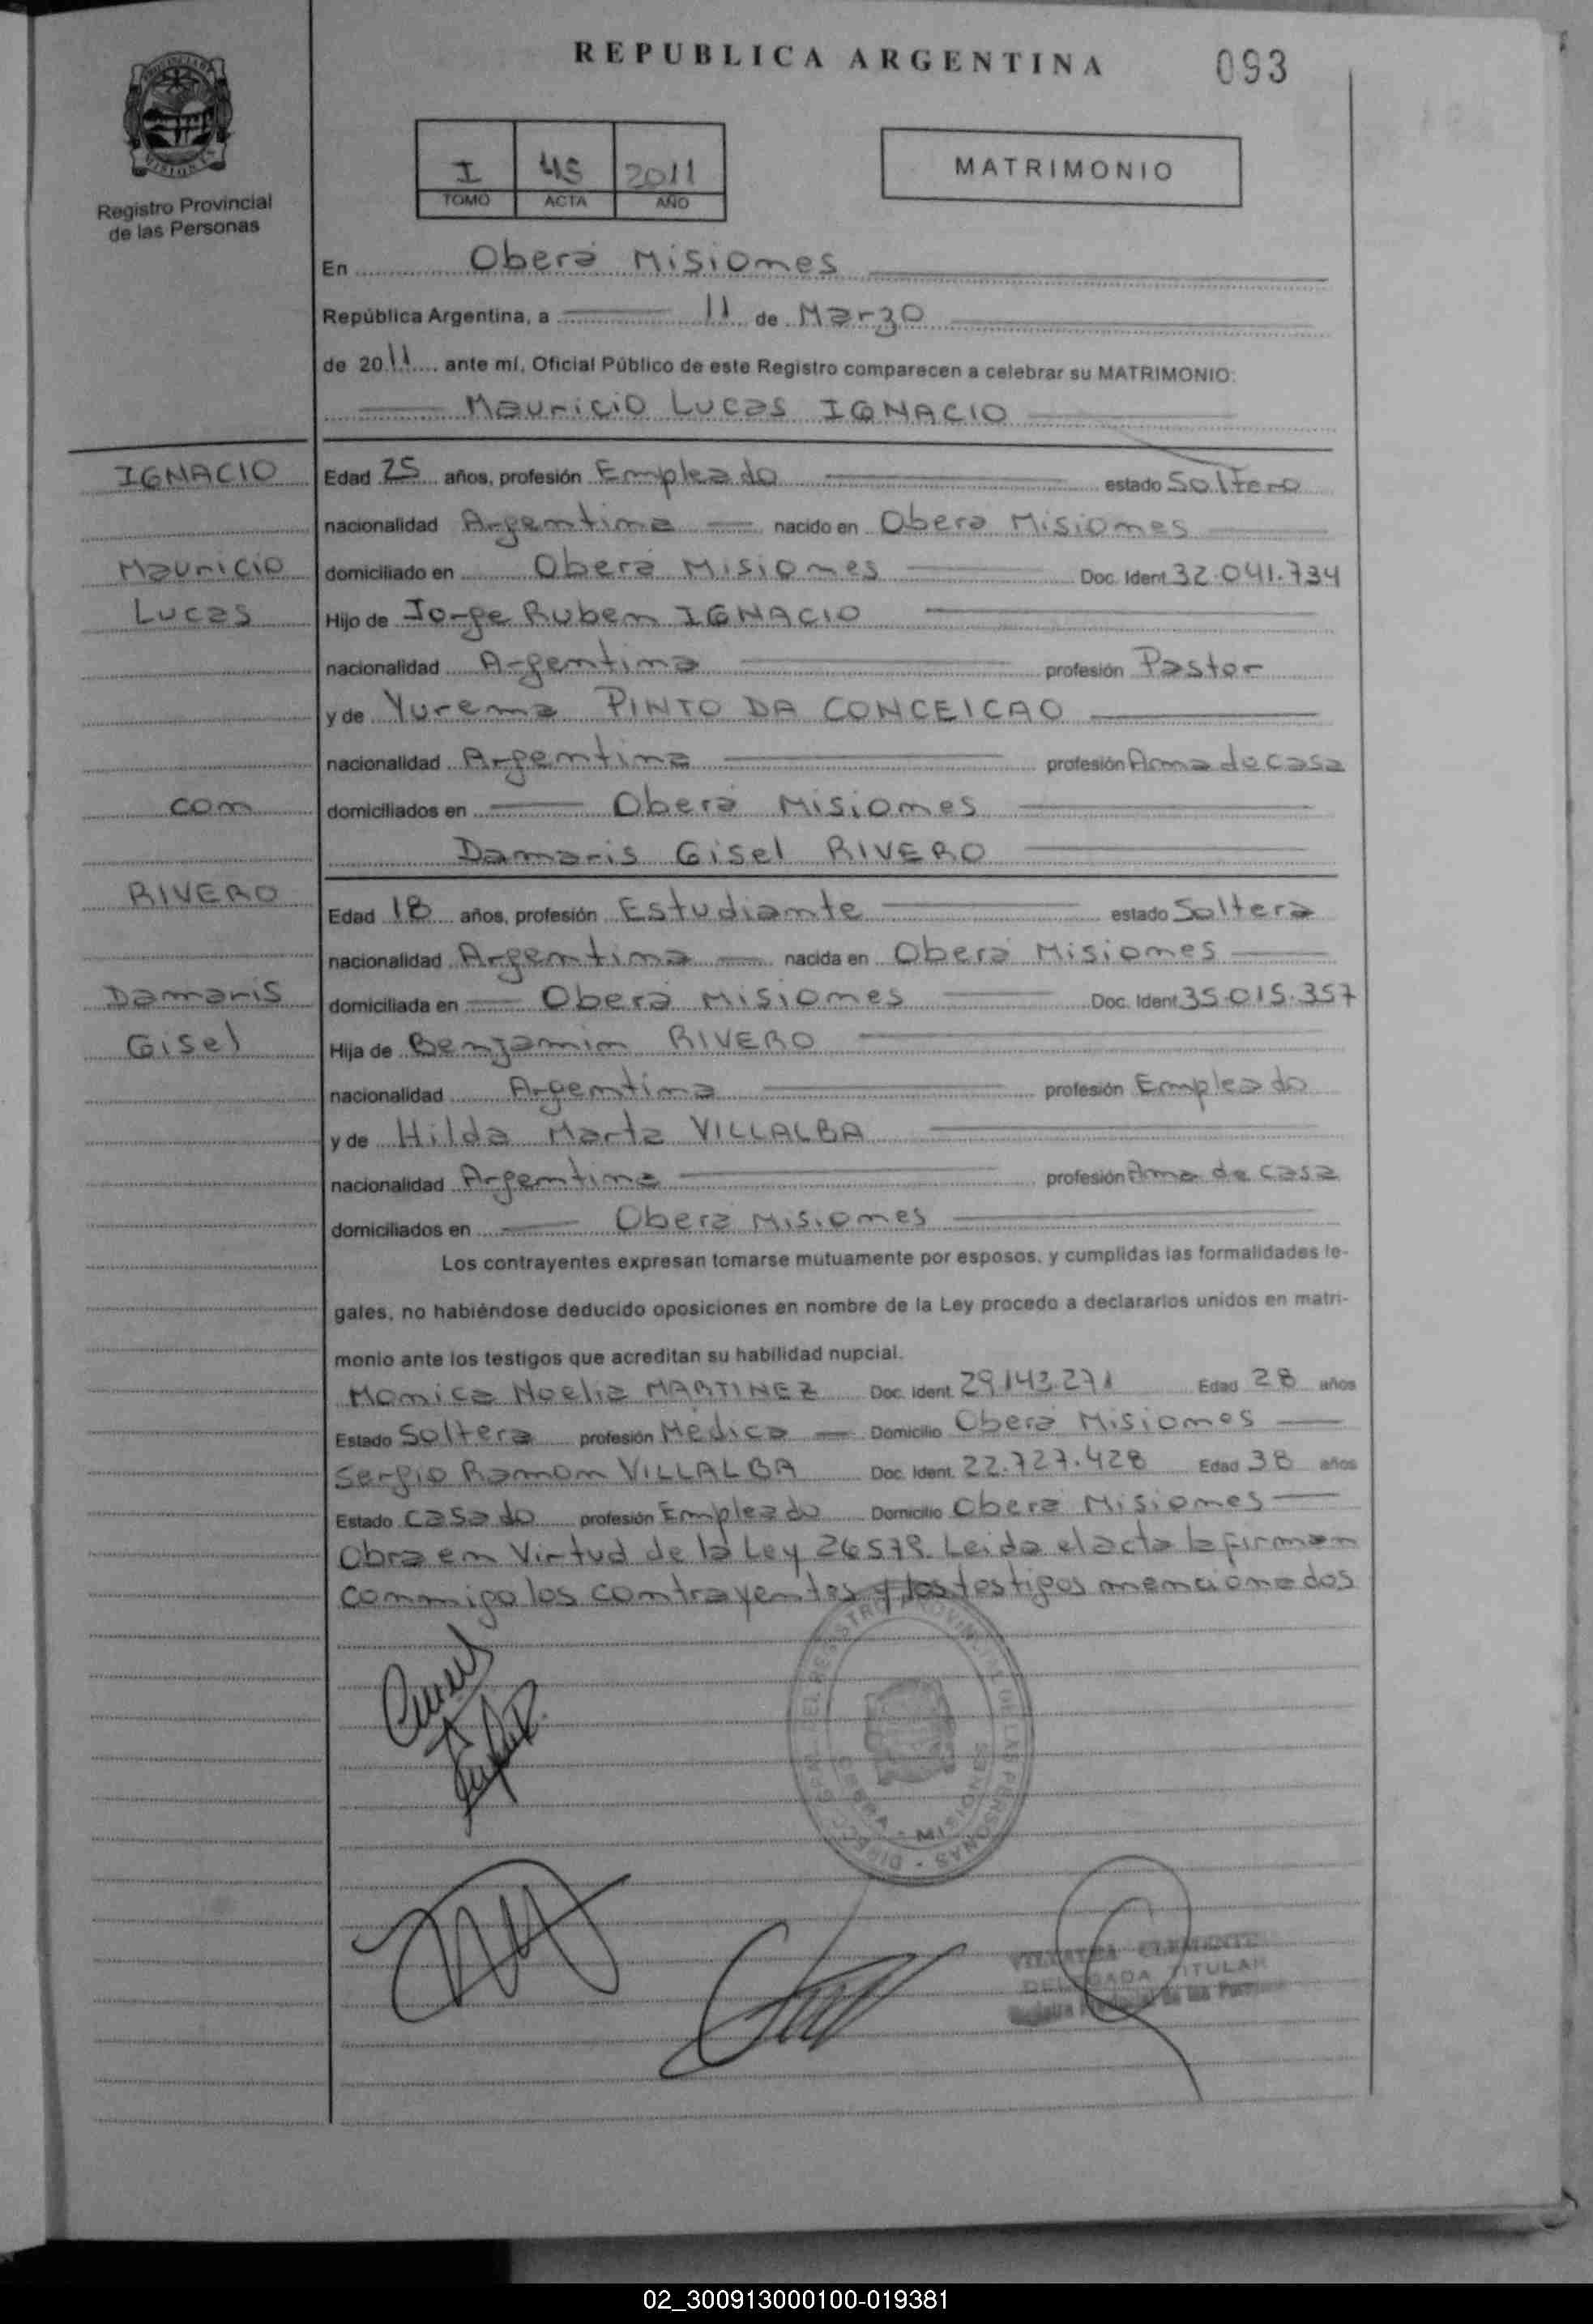 REPUBLICA ARGENTINA
093
Registro Provincial
de las Personas
I 45 2011
TOMO ACTA AÑO
MATRIMONIO
En Oberá Misiones
República Argentina, a 11 de Marzo
de 2011 ante mí, Oficial Público de este Registro comparecen a celebrar su MATRIMONIO:
Mauricio Lucas IGNACIO
IGNACIO
Edad 25 años, profesión Empleado estado Soltero
nacionalidad Argentina nacido en Oberá Misiones
Mauricio
domiciliado en Oberá Misiones Doc. Ident 32.041.734
Lucas
Hijo de Jorge Ruben IGNACIO
nacionalidad Argentina profesión Pastor
y de Yurema PINTO DA CONCEICAO
nacionalidad Argentina profesión Ama de casa
con
domiciliados en Oberá Misiones
Damaris Gisel RIVERO
RIVERO
Edad 18 años, profesión Estudiante estado Soltera
nacionalidad Argentina nacida en Oberá Misiones
Damaris
domiciliada en Oberá Misiones Doc. Ident 35.015.357
Gisel
Hija de Benjamin RIVERO
nacionalidad Argentina profesión Empleado
y de Hilda Marta VILLALBA
nacionalidad Argentina profesión Ama de casa
domiciliados en Oberá Misiones
Los contrayentes expresan tomarse mutuamente por esposos, y cumplidas las formalidades le-
gales, no habiéndose deducido oposiciones en nombre de la Ley procedo a declararlos unidos en matri-
monio ante los testigos que acreditan su habilidad nupcial.
Monica Noelia MARTINEZ Doc. Ident. 29.143.271 Edad 28 años
Estado Soltera profesión Médica Domicilio Oberá Misiones
Sergio Ramon VILLALBA Doc. Ident. 22.727.428 Edad 38 años
Estado Casado profesión Empleado Domicilio Oberá Misiones
Obra en Virtud de la Ley 26579. Leida el acta la firman
conmigo los contrayentes y los testigos mencionados
REGISTRO PROVINCIAL DE LAS PERSONAS
MISIONES
CLEMENTE
TITULAR
02_300913000100-019381